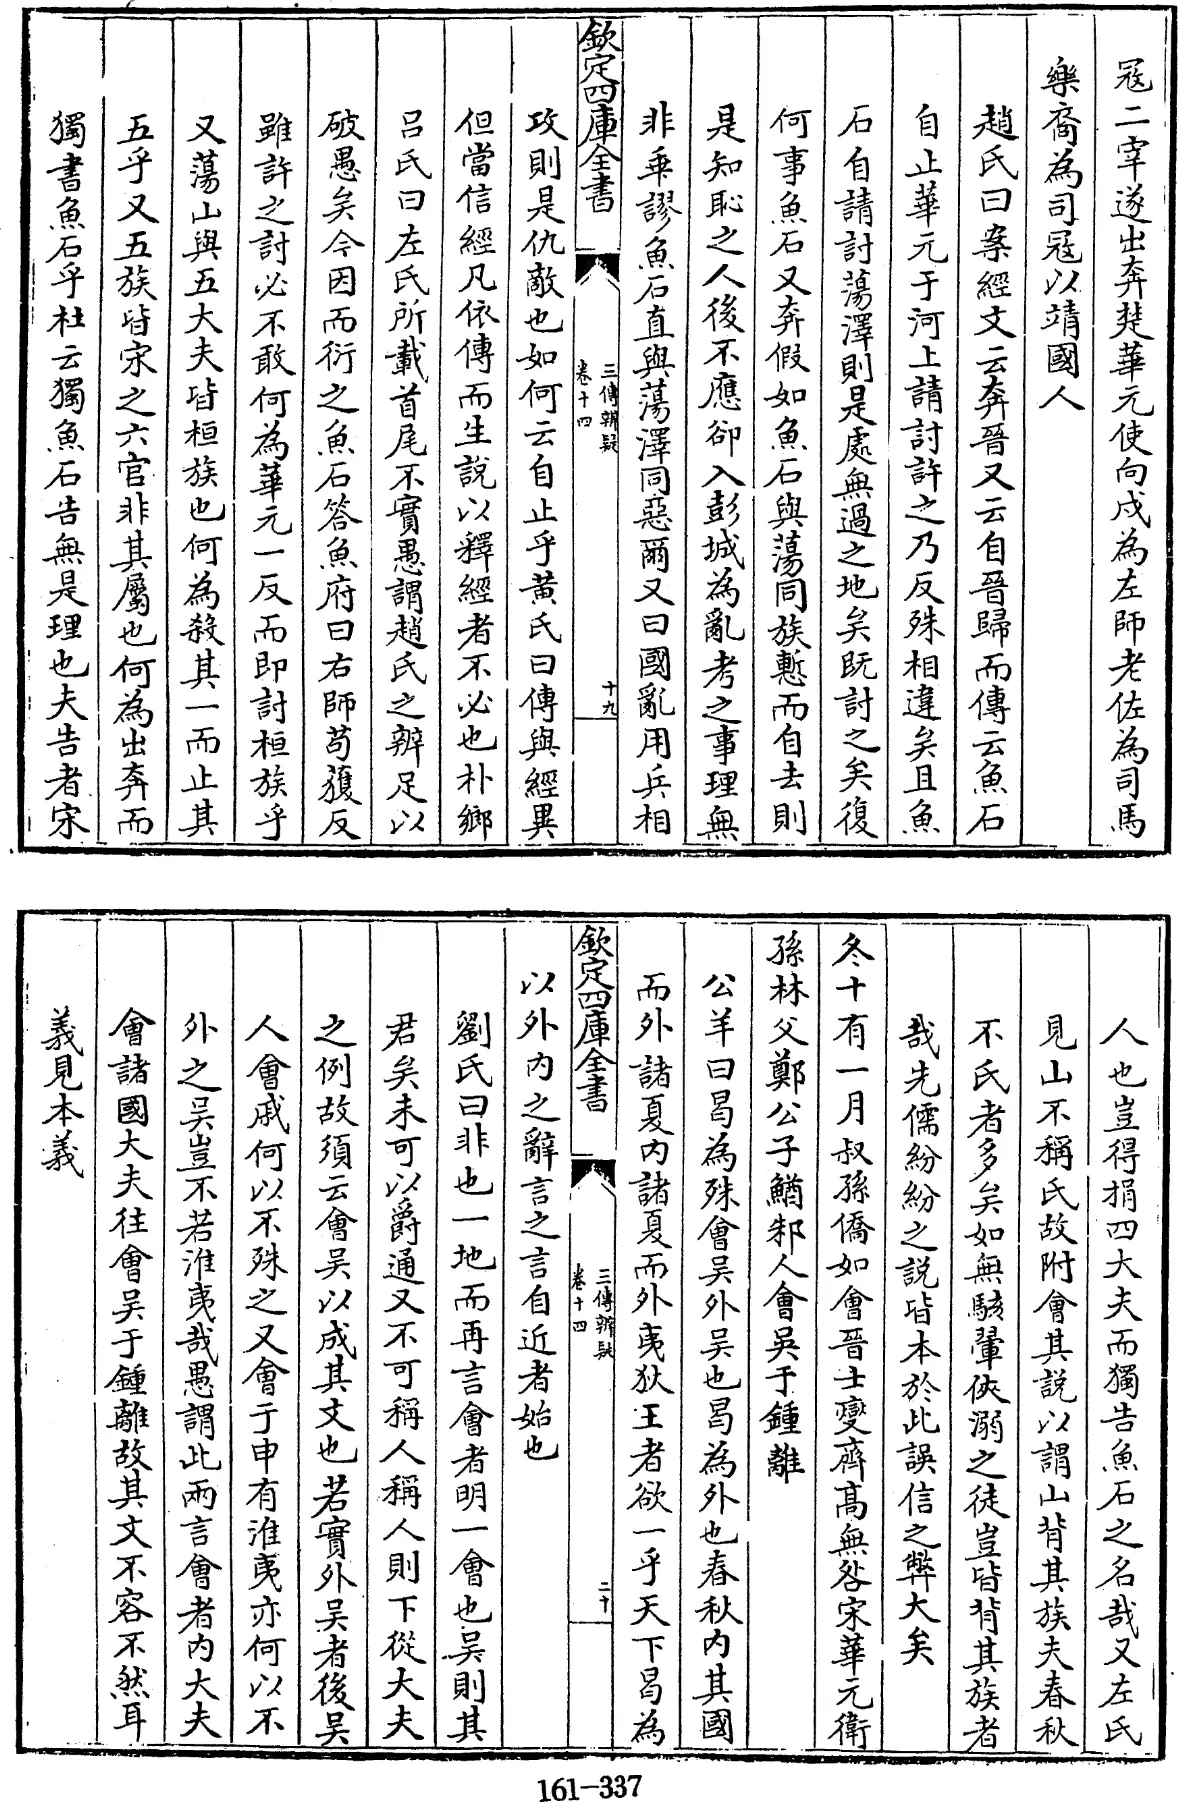 冦二宰遂出奔楚華元使向戌為左師老佐為司馬
樂裔為司冦以靖國人
趙氏曰案經文云奔晉又云自晉歸而傳云魚石
自止華元于河上請討許之乃反殊相違矣且魚
石自請討蕩澤則是處無過之地矣既討之矣復
何事魚石又奔假如魚石與蕩同族慙而自去則
是知恥之人後不應卻入彭城為亂考之事理無
非乖謬魚石直與蕩澤同惡爾又曰國亂用兵相
欽定四庫全書
三傳辨疑
卷十四
十九
攻則是仇敵也如何云自止乎黄氏曰傳與經異
但當信經凡依傳而生說以釋經者不必也朴鄉
吕氏曰左氏所載首尾不實愚謂趙氏之辨足以
破愚矣今因而衍之魚石答魚府曰右師苟獲反
雖許之討必不敢何為華元一反而即討桓族乎
又蕩山與五大夫皆桓族也何為殺其一而止其
五乎又五族皆宋之六官非其屬也何為出奔而
獨書魚石乎杜云獨魚石告無是理也夫告者宋
人也豈得捐四大夫而獨告魚石之名哉又左氏
見山不稱氏故附會其說以謂山背其族夫春秋
不氏者多矣如無駭翬俠溺之徒豈皆背其族者
哉先儒紛紛之説皆本於此誤信之弊大矣
冬十有一月叔孫僑如會晉士燮齊高無咎宋華元衛
孫林父鄭公子鰌邾人會吳于鍾離
公羊曰曷為殊會吴外吴也曷為外也春秋内其國
而外諸夏内諸夏而外夷狄王者欲一乎天下曷為
欽定四庫全書
三傳辨疑
卷十四
二十
以外内之辭言之言自近者始也
劉氏曰非也一地而再言會者明一會也吴則其
君矣未可以爵通又不可稱人稱人則下從大夫
之例故須云會吴以成其文也若實外吴者後吴
人會戚何以不殊之又會于申有淮夷亦何以不
外之吴豈不若淮夷哉愚謂此兩言會者内大夫
會諸國大夫往會吴于鍾離故其文不容不然耳
義見本義
161-337